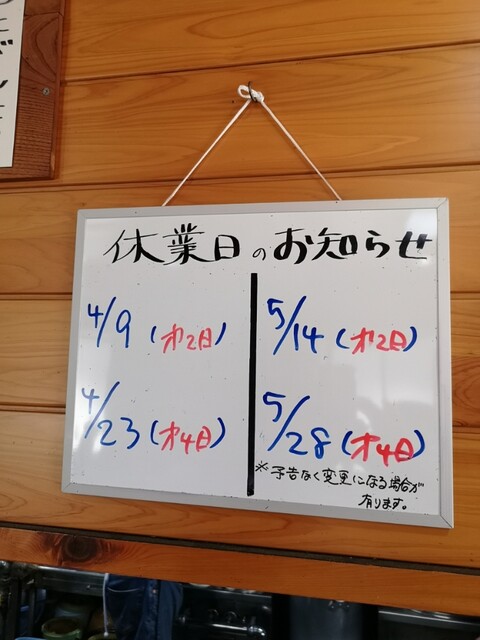 休業日のお知らせ
4/9 (才2日)
4/23 (才4日)
5/14 (才2日)
5/28 (才4日)
※予告なく変更になる場合が
有ります。